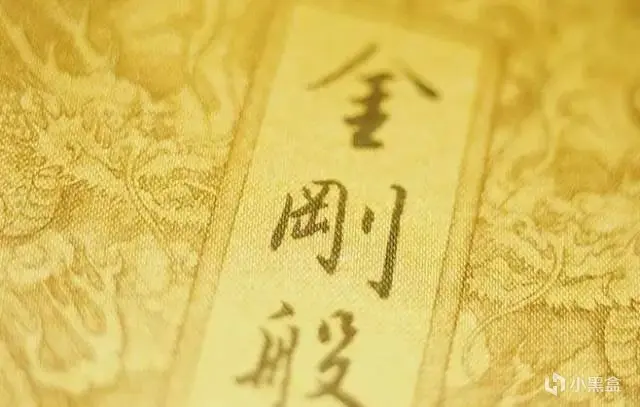 金剛般
小黑盒